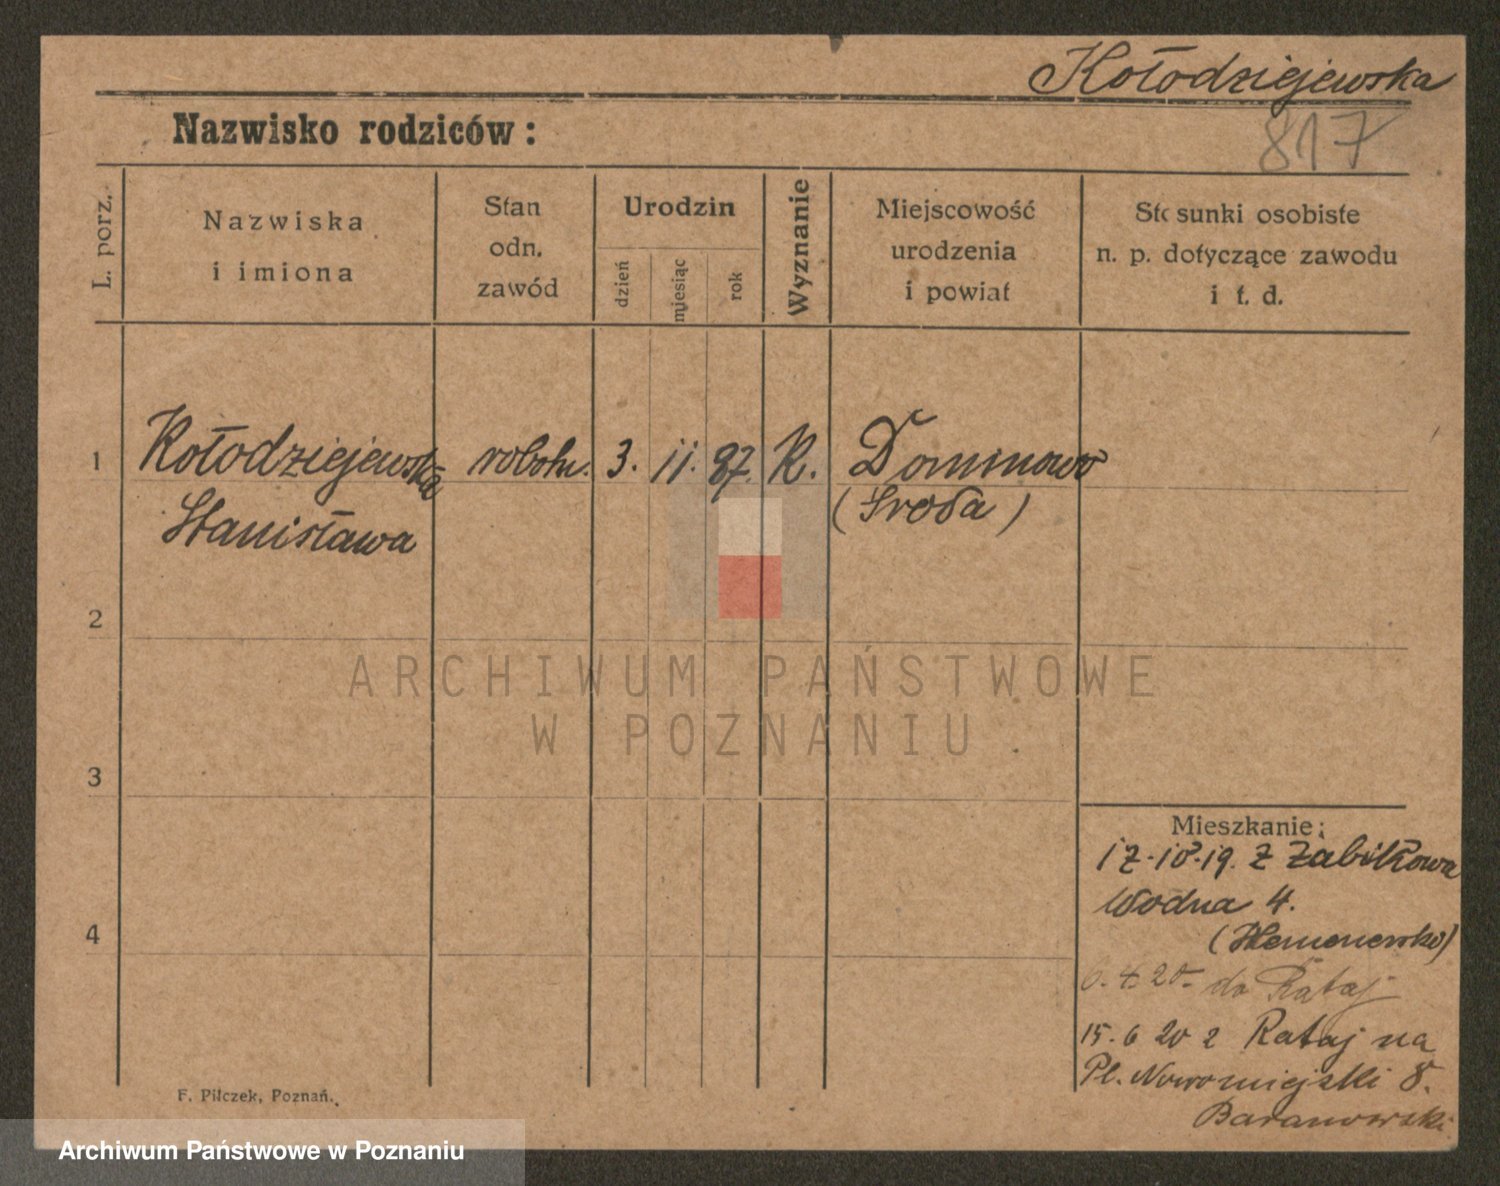 Kołodziejewska
817
Nazwisko rodziców:
L. porz.
Nazwiska
i imiona
Stan
odn.
zawód
Urodzin
dzień
miesiąc
rok
Wyznanie
Miejscowość
urodzenia
i powiat
Stosunki osobiste
n. p. dotyczące zawodu
i t. d.
1
Kołodziejewska
Stanisława
robotn. 3. 11. 87. K. Dominowo
(Środa)
2
3
4
ARCHIWUM PAŃSTWOWE
W POZNANIU
Mieszkanie:
17.10.19. z Żabikowa
Wodna 4.
4. 20. do Rataj
15. 6 20 z Rataj na
Pl. Nowomiejski 8.
Baranowski
F. Pilczek, Poznań.
Archiwum Państwowe w Poznaniu